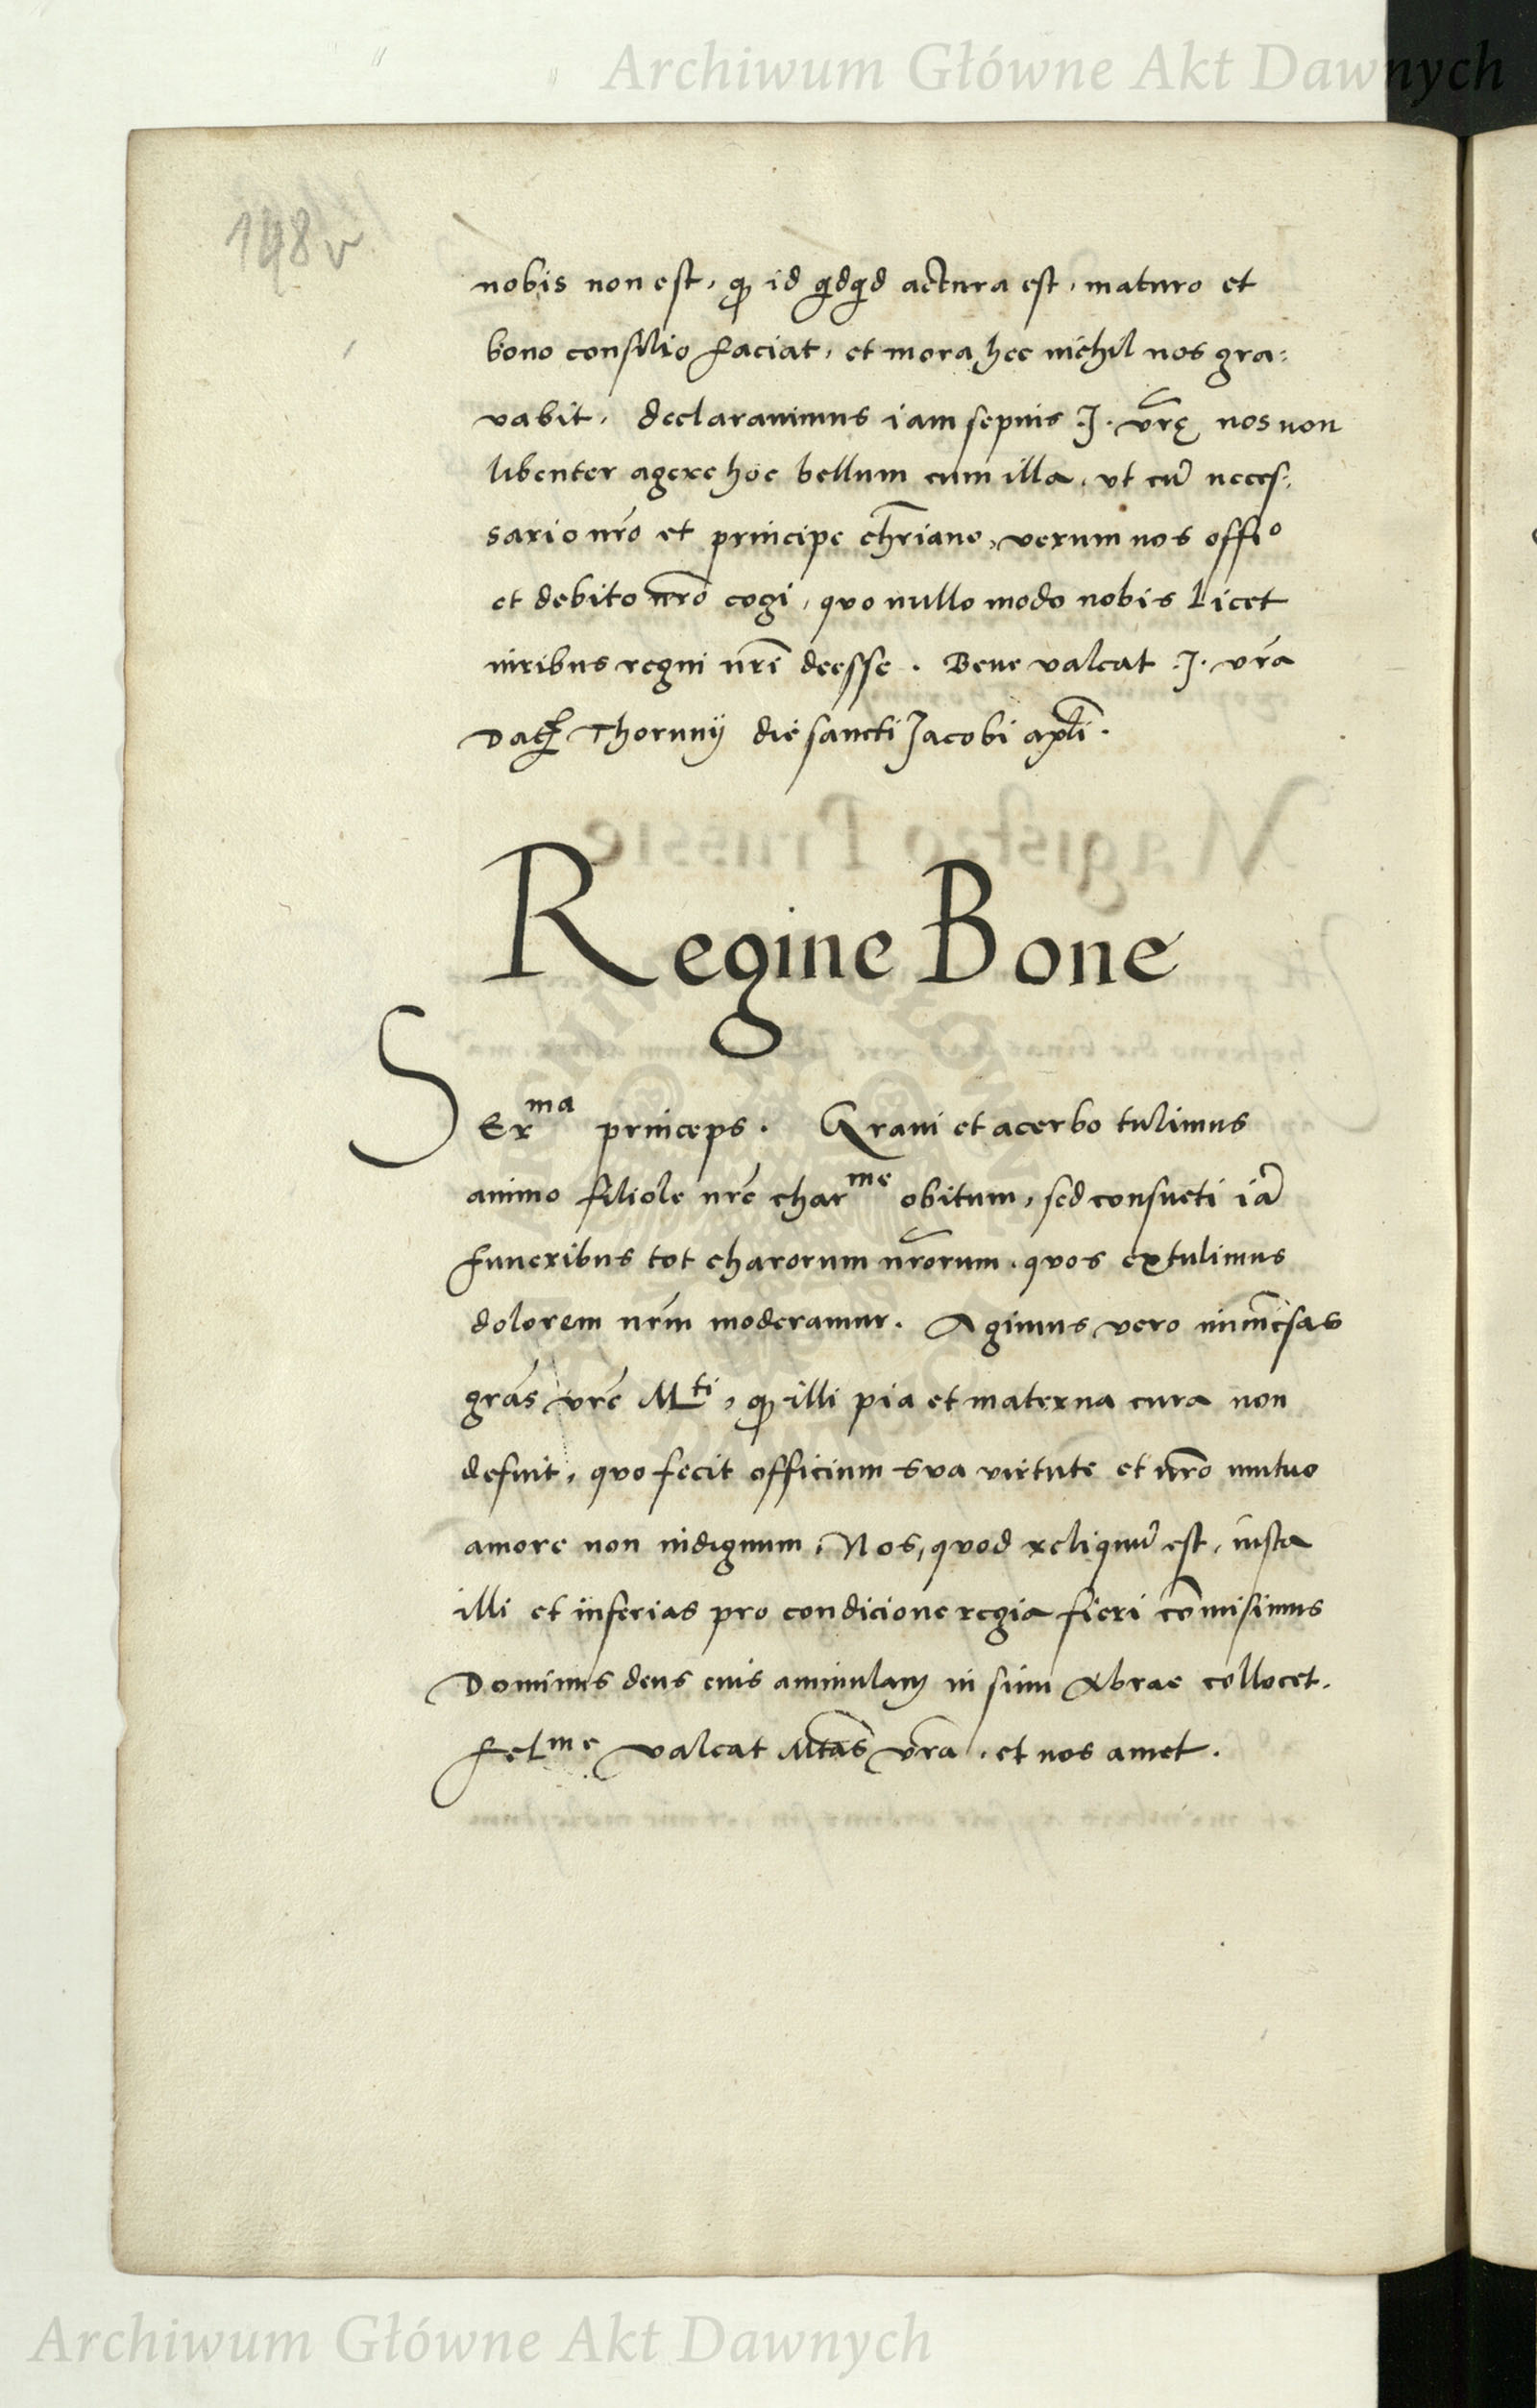 Archiwum Główne Akt Dawnych
198v
nobis non est, qp id qdqd actura est, maturo et
bono consilio faciat, et mora hec nichil nos gra:
vabit. declaravimus iam sepius .J. vrę nos non
libenter agere hoc bellum cum illa, ut cū neces:
sario nro et principe chriano, verum nos offio
et debito nro cogi, quo nullo modo nobis licet
iuribus regni nri deesse. Bene valeat .J. vra
Dat Thorunij die sancti Jacobi apli.
Regine Bone
Serma princeps. Gravi et acerbo tulimus
animo filiole nre charme obitum, sed consueti iā
funeribus tot charorum nrorum, quos extulimus
dolorem nrm moderamur. Agimus vero immēsas
gras vre Mti, qp illi pia et materna cura non
defuit, quo fecit officium sua virtute et nro mutuo
amore non indignum. Nos, quod reliquū est, iusta
illi et inferias pro condicione regia fieri cōmisimus
Dominus deus eius animulam in sinu Abrae collocet.
Felme valeat Mtas vra, et nos amet.
Archiwum Główne Akt Dawnych